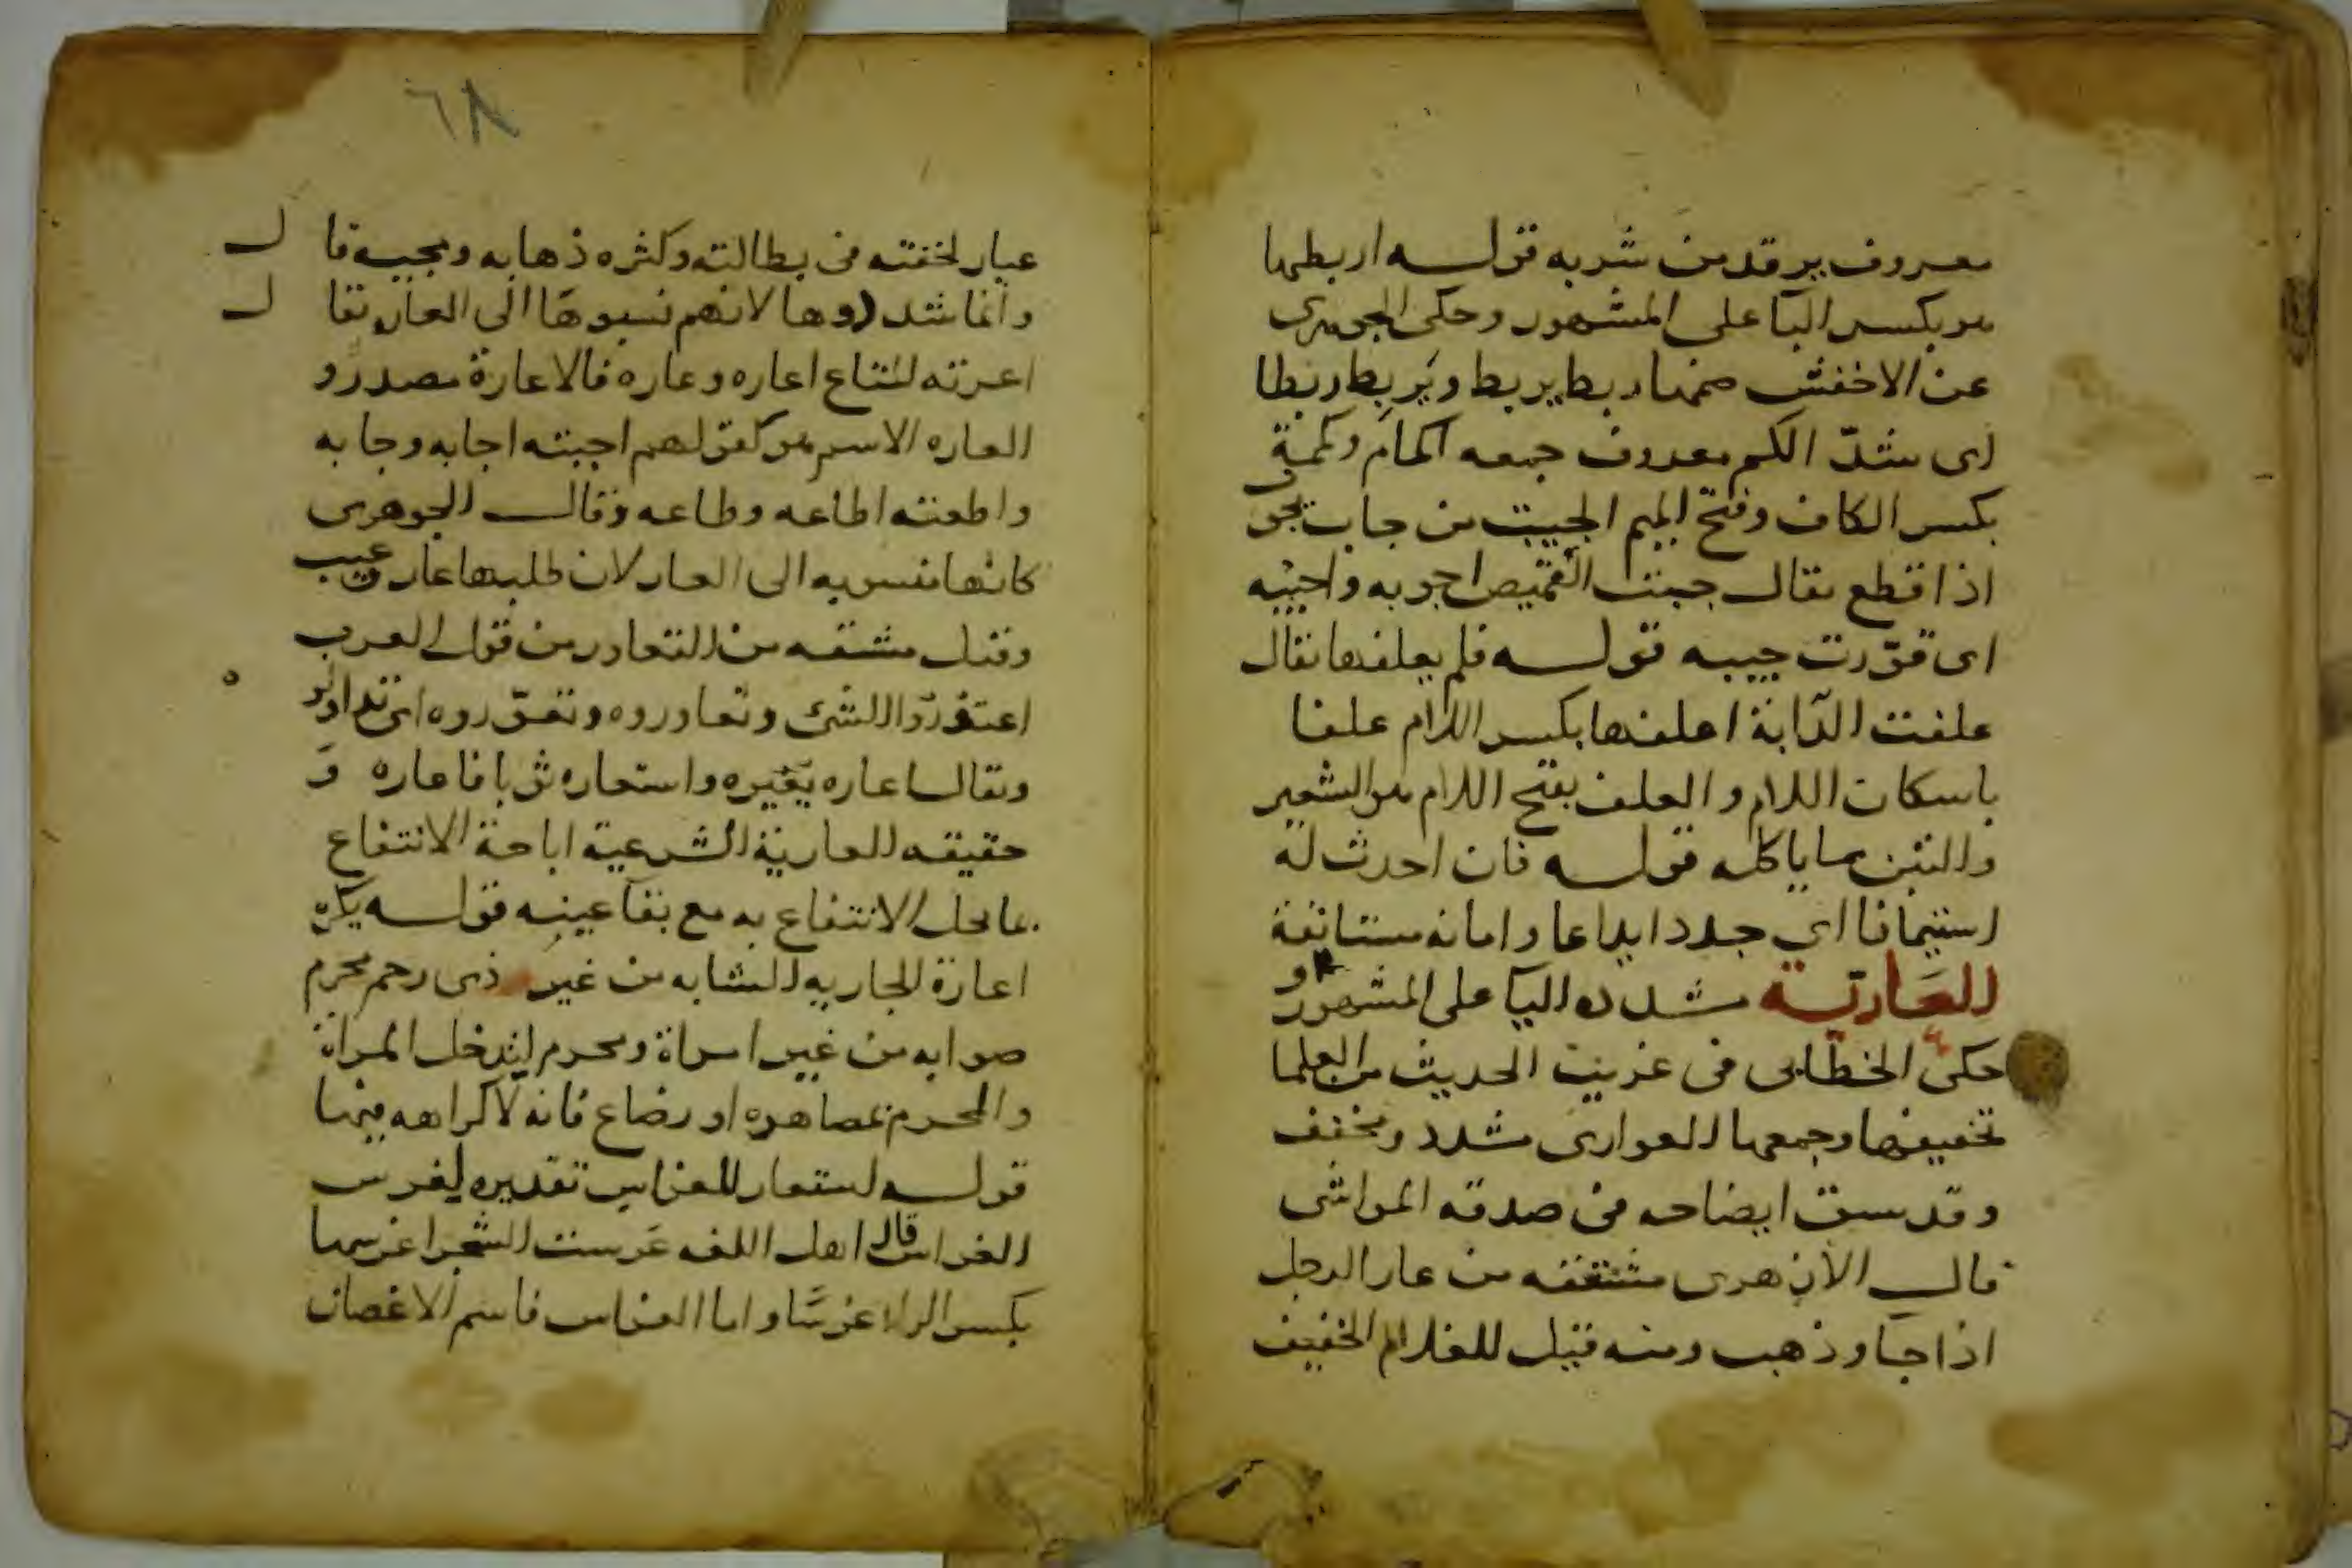 معروف يرقد من شربه قوله اربطها
هو بكسر البا على المشهور وحكى الجوهرى
عن الاخفش ضمها ربط يربط ويربط ربطا
اى شدّ الكم معروف جمعه اكمام وكممة
بكسر الكاف وفتح الميم الجيب من جاب يجو
اذا قطع يقال جبت القميص اجوبه واجيبه
اى قوّرت جيبه قوله فلم يعلفها يقال
علفت الدآبة اعلفها بكسر اللام علفا
باسكان اللام والعلف بفتح اللام هو الشعير
والتبن مما ياكله قوله فان احدث له
استيمانا اي جدد ايداعا وامانه مستانفة
العَاريّة مشدده اليا على المشهور و
حكى الخطّابى فى غريب الحديث من العلما
تخفيفها وجمعها العوارى مشدد ومخفف
وقد سبق ايضاحه فى صدقه المواشى
قال الازهرى مشتقه من عار الرجل
اذا جا وذهب ومنه قيل للغلام الخفيف
٦٨
عيار لخفته فى بطالته وكثره ذهابه ومجيه قال
وانما شددوها لانهم نسبوها الى العار يقال
اعرته المتاع اعاره وعاره فالاعارة مصدر و
العاره الاسم هو كقولهم اجبته اجابه وجابه
واطعته اطاعه وطاعه وقال الجوهرى
كانها منسوبه الى العار لان طلبها عار وعيب
وقيل مشتقه من التعاور من قول العرب
اعتوروا الشئ وتعاوروه وتعوّروه اى تداولو
ه
ويقال اعاره يعيره واستعاره ثوبا فاعاره و
حقيقه العارية الشرعية اباحة الانتفاع
بما يحل الانتفاع به مع بقآ عينه قوله يكره
اعارة الجاريه الشابه من غير ذى رحم محرم
صوابه من غير امراة ومحرم ليدخل المراة
والمحرم بمصاهره او رضاع فانه لا كراهه فيهما
قوله استعار للغراس تقديره لغرس
الغراس قال اهل اللغه غرست الشجر اغرسها
بكسر الرا غرسًا واما الغراس فاسم الاغصان